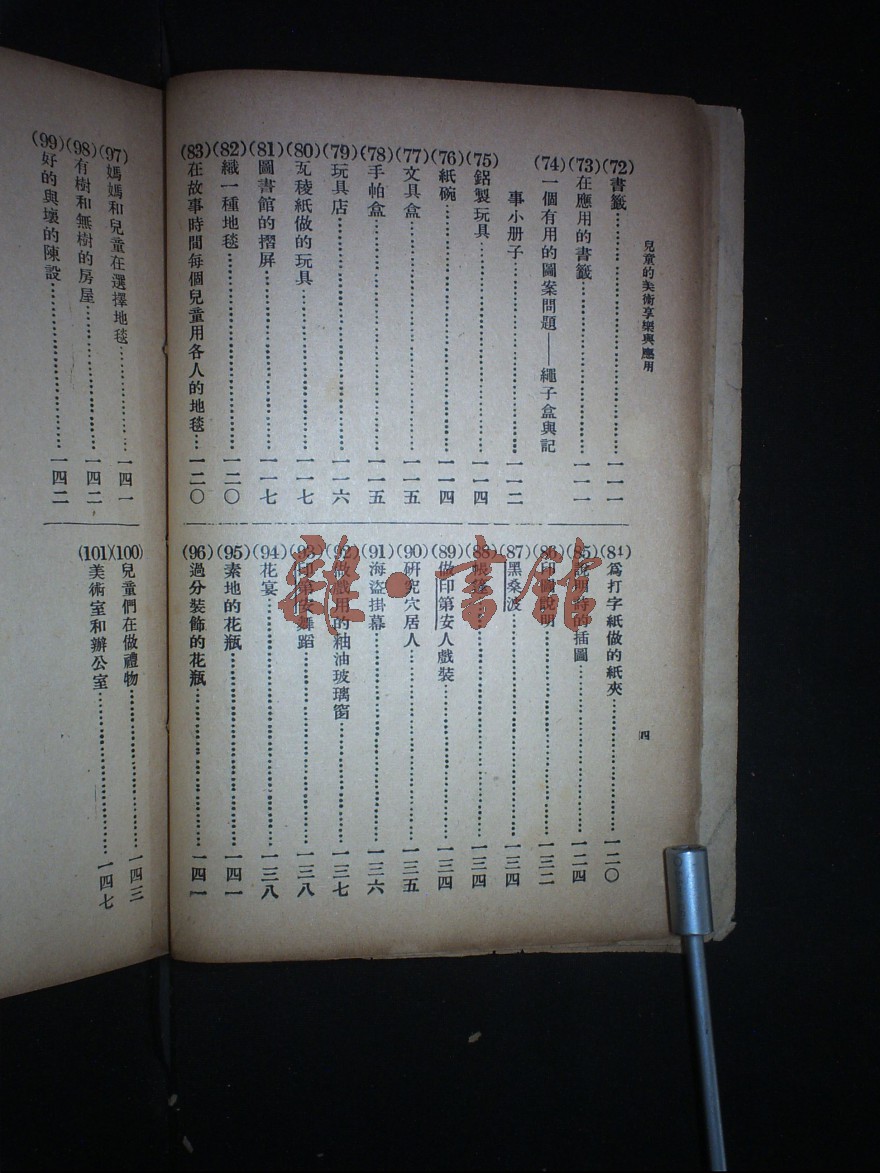 兒童的美術享樂與應用
(72)書籤……一一一
(73)在應用的書籤……一一一
(74)一個有用的圖案問題——繩子盒與記
事小册子……一一二
(75)鋁製玩具……一一四
(76)紙碗……一一四
(77)文具盒……一一五
(78)手帕盒……一一五
(79)玩具店……一一六
(80)瓦稜紙做的玩具……一一七
(81)圖書館的摺屏……一一七
(82)織一種地毯……一二〇
(83)在故事時間每個兒童用各人的地毯……一二〇
(84)爲打字紙做的紙夾……一二〇
(85)說明詩的插圖……一二四
(86)印圖說明……一三二
(87)黑桑波……一三四
(88)帳篷……一三四
(89)做印第安人戲裝……一三四
(90)研究穴居人……一三五
(91)海盜掛幕……一三六
(92)做戲用的釉油玻璃窗……一三七
(93)印第安舞蹈……一三八
(94)花宴……一三八
(95)素地的花瓶……一四一
(96)過分裝飾的花瓶……一四一
四
(97)媽媽和兒童在選擇地毯……一四一
(98)有樹和無樹的房屋……一四二
(99)好的與壞的陳設……一四二
(100)兒童們在做禮物……一四三
(101)美術室和辦公室……一四七
雜·書館